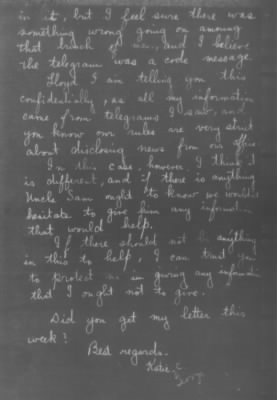 in it, but I feel sure there was
something wrong going on among
that bunch of men, and I believe
the telegram was a code message.
Lloyd I am telling you this
confidentially, as all my information
came from telegrams I saw, and
you know our rules are very strict
about disclosing news from our office.
In this case, however I think it
is different, and if there is anything
Uncle Sam ought to know we wouldn't
hesitate to give him any information
that would help.
If there should not be anything
in this to help, I can trust you
to protect me in giving any information
that I ought not to give.
Did you get my letter this
week?
Best regards.
Katie